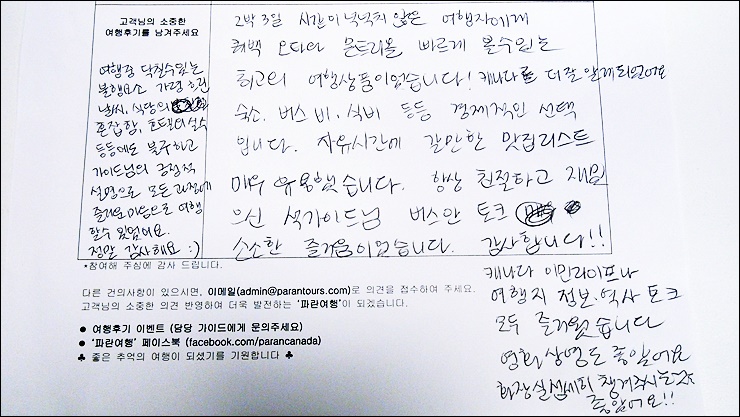 고객님의 소중한
여행후기를 남겨주세요
여행중 닥칠수있는
불행요소 가령 흐린
날씨, 식당의
혼잡함, 호텔의 실수
등등에도 불구하고
가이드님의 긍정적
설명으로 모든 과정에
즐거운 마음으로 여행
할수 있었어요.
정말 감사해요 :)
2박 3일 시간이 넉넉치 않은 여행자에게
퀘벡 오타와 몬트리올 빠르게 볼수있는
최고의 여행상품이었습니다! 캐나다를 더 잘 알게되었어요
숙소, 버스비, 식비 등등 경제적인 선택
입니다. 자유시간에 갈만한 맛집리스트
매우 유용했습니다. 항상 친절하고 재밌
으신 석가이드님 버스안 토크
소소한 즐거움이었습니다. 감사합니다!!
캐나다 이민라이프나
여행지 정보·역사 토크
모두 즐거웠습니다
영화상영도 좋았어요
화장실 섬세히 챙겨주시는것
좋았어요!!
*참여해 주심에 감사 드립니다.
다른 건의사항이 있으시면, 이메일(admin@parantours.com)로 의견을 접수하여 주세요.
고객님의 소중한 의견 반영하여 더욱 발전하는 '파란여행'이 되겠습니다.
● 여행후기 이벤트 (담당 가이드에게 문의주세요)
● '파란여행' 페이스북 (facebook.com/parancanada)
♣ 좋은 추억의 여행이 되셨기를 기원합니다 ♣